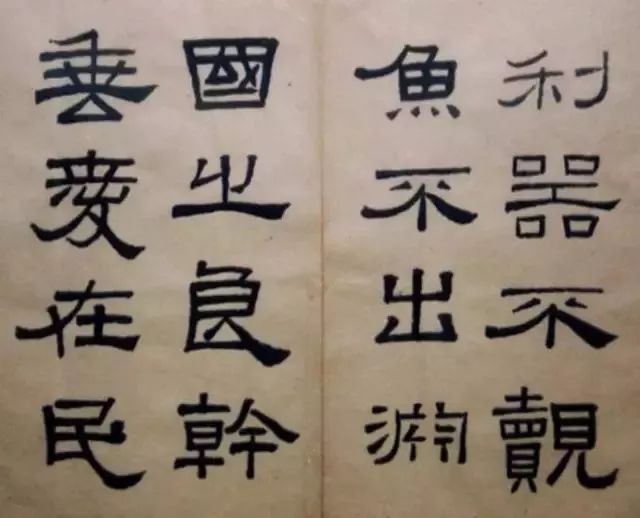 利器不覿
魚不出淵
國之良幹
垂愛在民